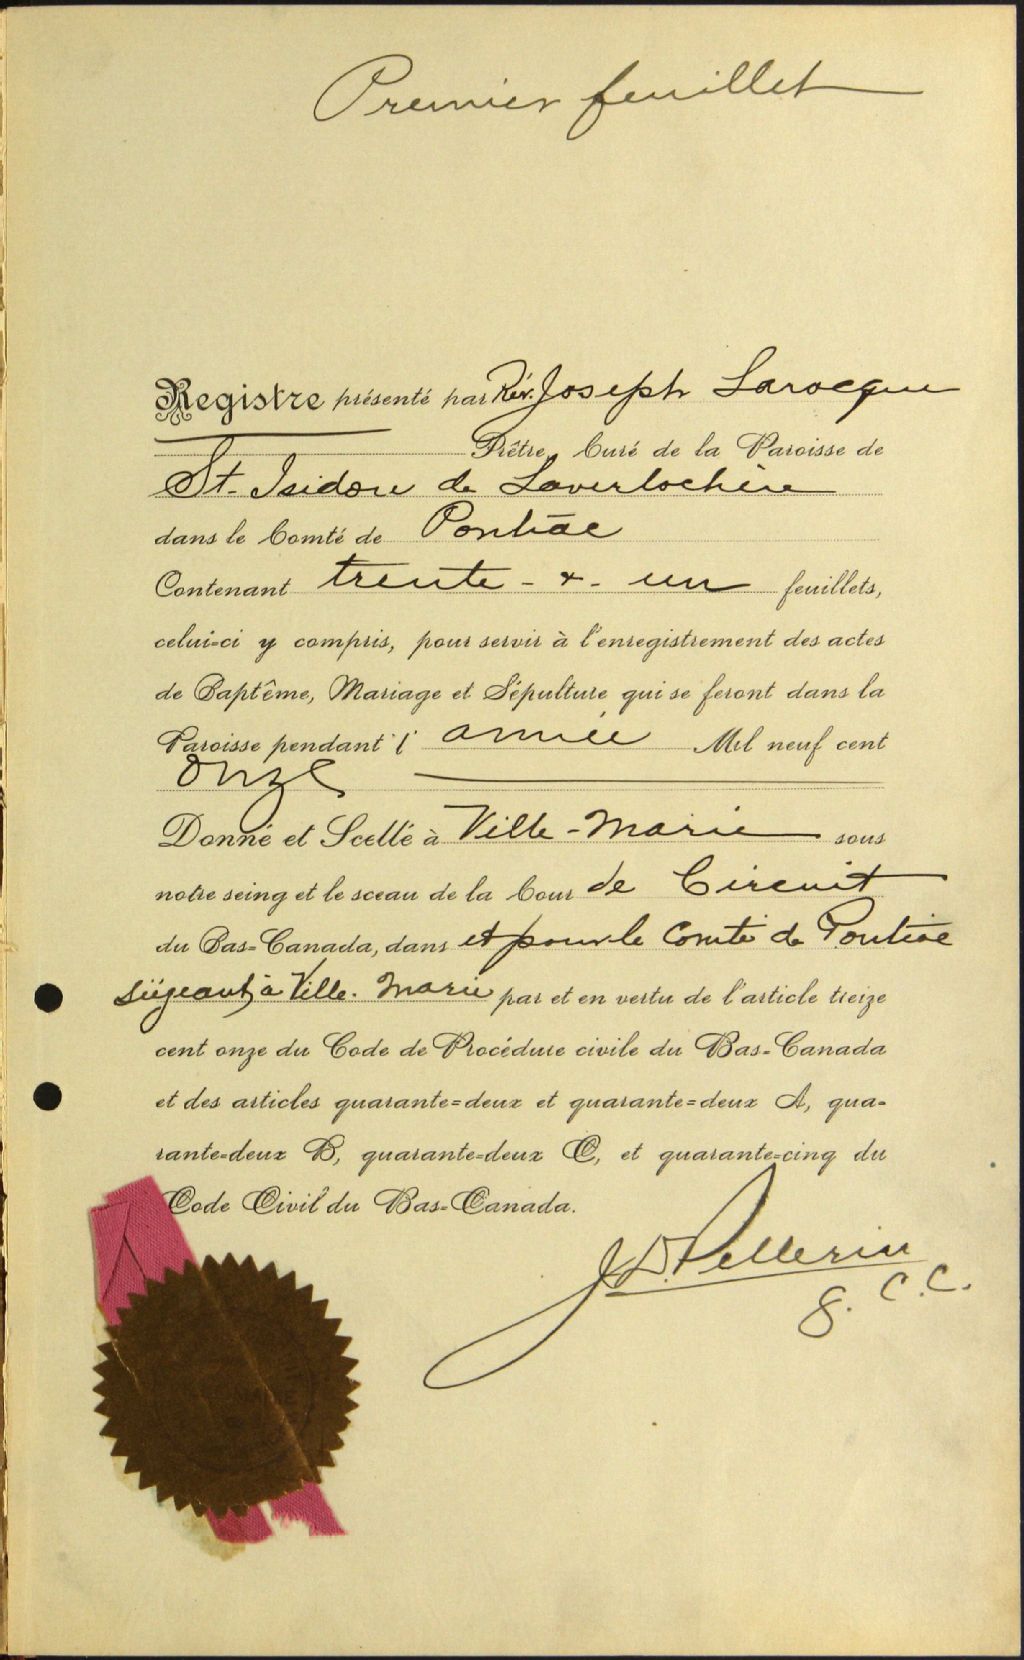 Premier feuillet
Registre présenté par Rév. Joseph Larocque
Prêtre, Curé de la Paroisse de
St-Isidore de Laverlochère
dans le Comté de Pontiac
Contenant trente - & - un feuillets,
celui-ci y compris, pour servir à l'enregistrement des actes
de Baptême, Mariage et Sépulture qui se feront dans la
Paroisse pendant l' année Mil neuf cent
onze
Donné et Scellé à Ville-Marie sous
notre seing et le sceau de la Cour de Circuit
du Bas-Canada, dans et pour le Comté de Pontiac
siégeant à Ville-Marie par et en vertu de l'article treize
cent onze du Code de Procédure civile du Bas-Canada
et des articles quarante-deux et quarante-deux A, qua-
rante-deux B, quarante-deux C, et quarante-cinq du
Code Civil du Bas-Canada.
J.D. Pellerin
G. C. C.